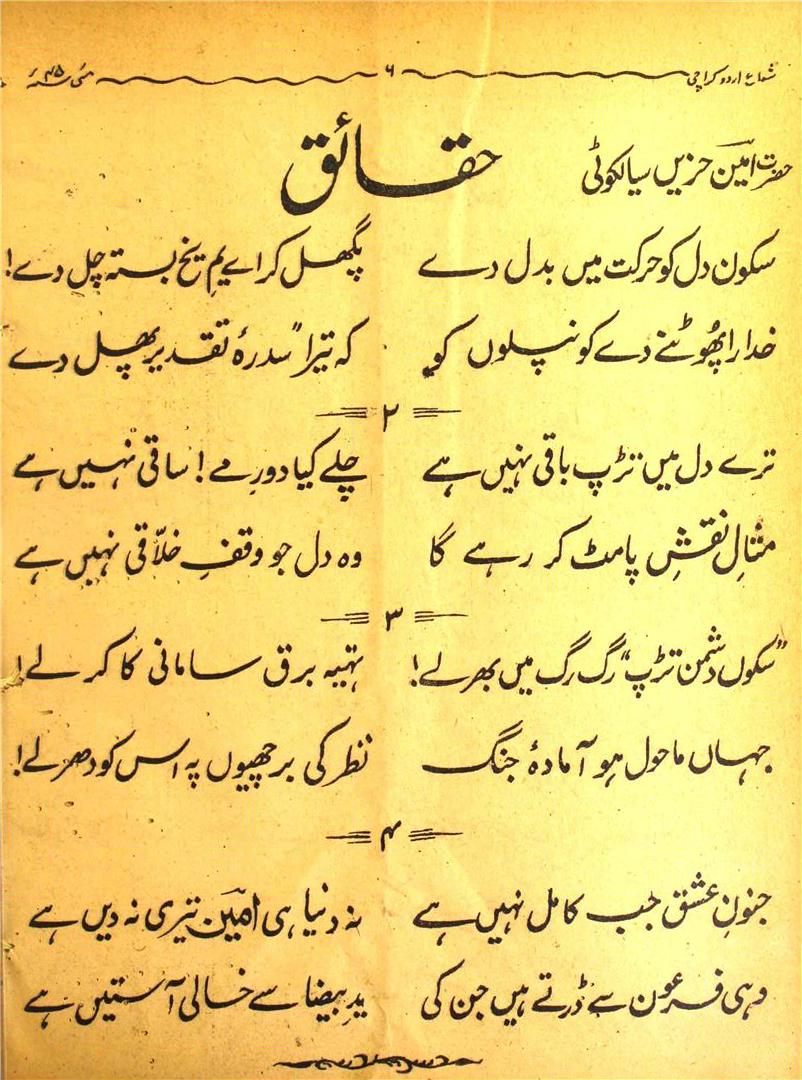 شعاع اردو کراچی ۶ مئی ۴۵ء
حقائق
حضرت امینؔ حزیں سیالکوٹی
سکون دل کو حرکت میں بدل دے پگھل کر اے یمِ یخ بستہ چل دے!
خدارا پھُوٹنے دے کونپلوں کو کہ تیرا "سدرۂ تقدیر پھل دے
۲
ترے دل میں تڑپ باقی نہیں ہے چلے کیا دورِ مے! ساقی نہیں ہے
مثالِ نقشِ پا مٹ کر رہے گا وہ دل جو وقفِ خلّاقی نہیں ہے
۳
"سکوں دشمن تڑپ" رگ رگ میں بھر لے! تہیہ برق سامانی کا کر لے!
جہاں ماحول ہو آمادۂ جنگ نظر کی برچھیوں پہ اس کو دھر لے!
۴
جنونِ عشق جب کامل نہیں ہے نہ دنیا ہی امینؔ تیری نہ دیں ہے
وہی فرعون سے ڈرتے ہیں جن کی یدِ بیضا سے خالی آستیں ہے